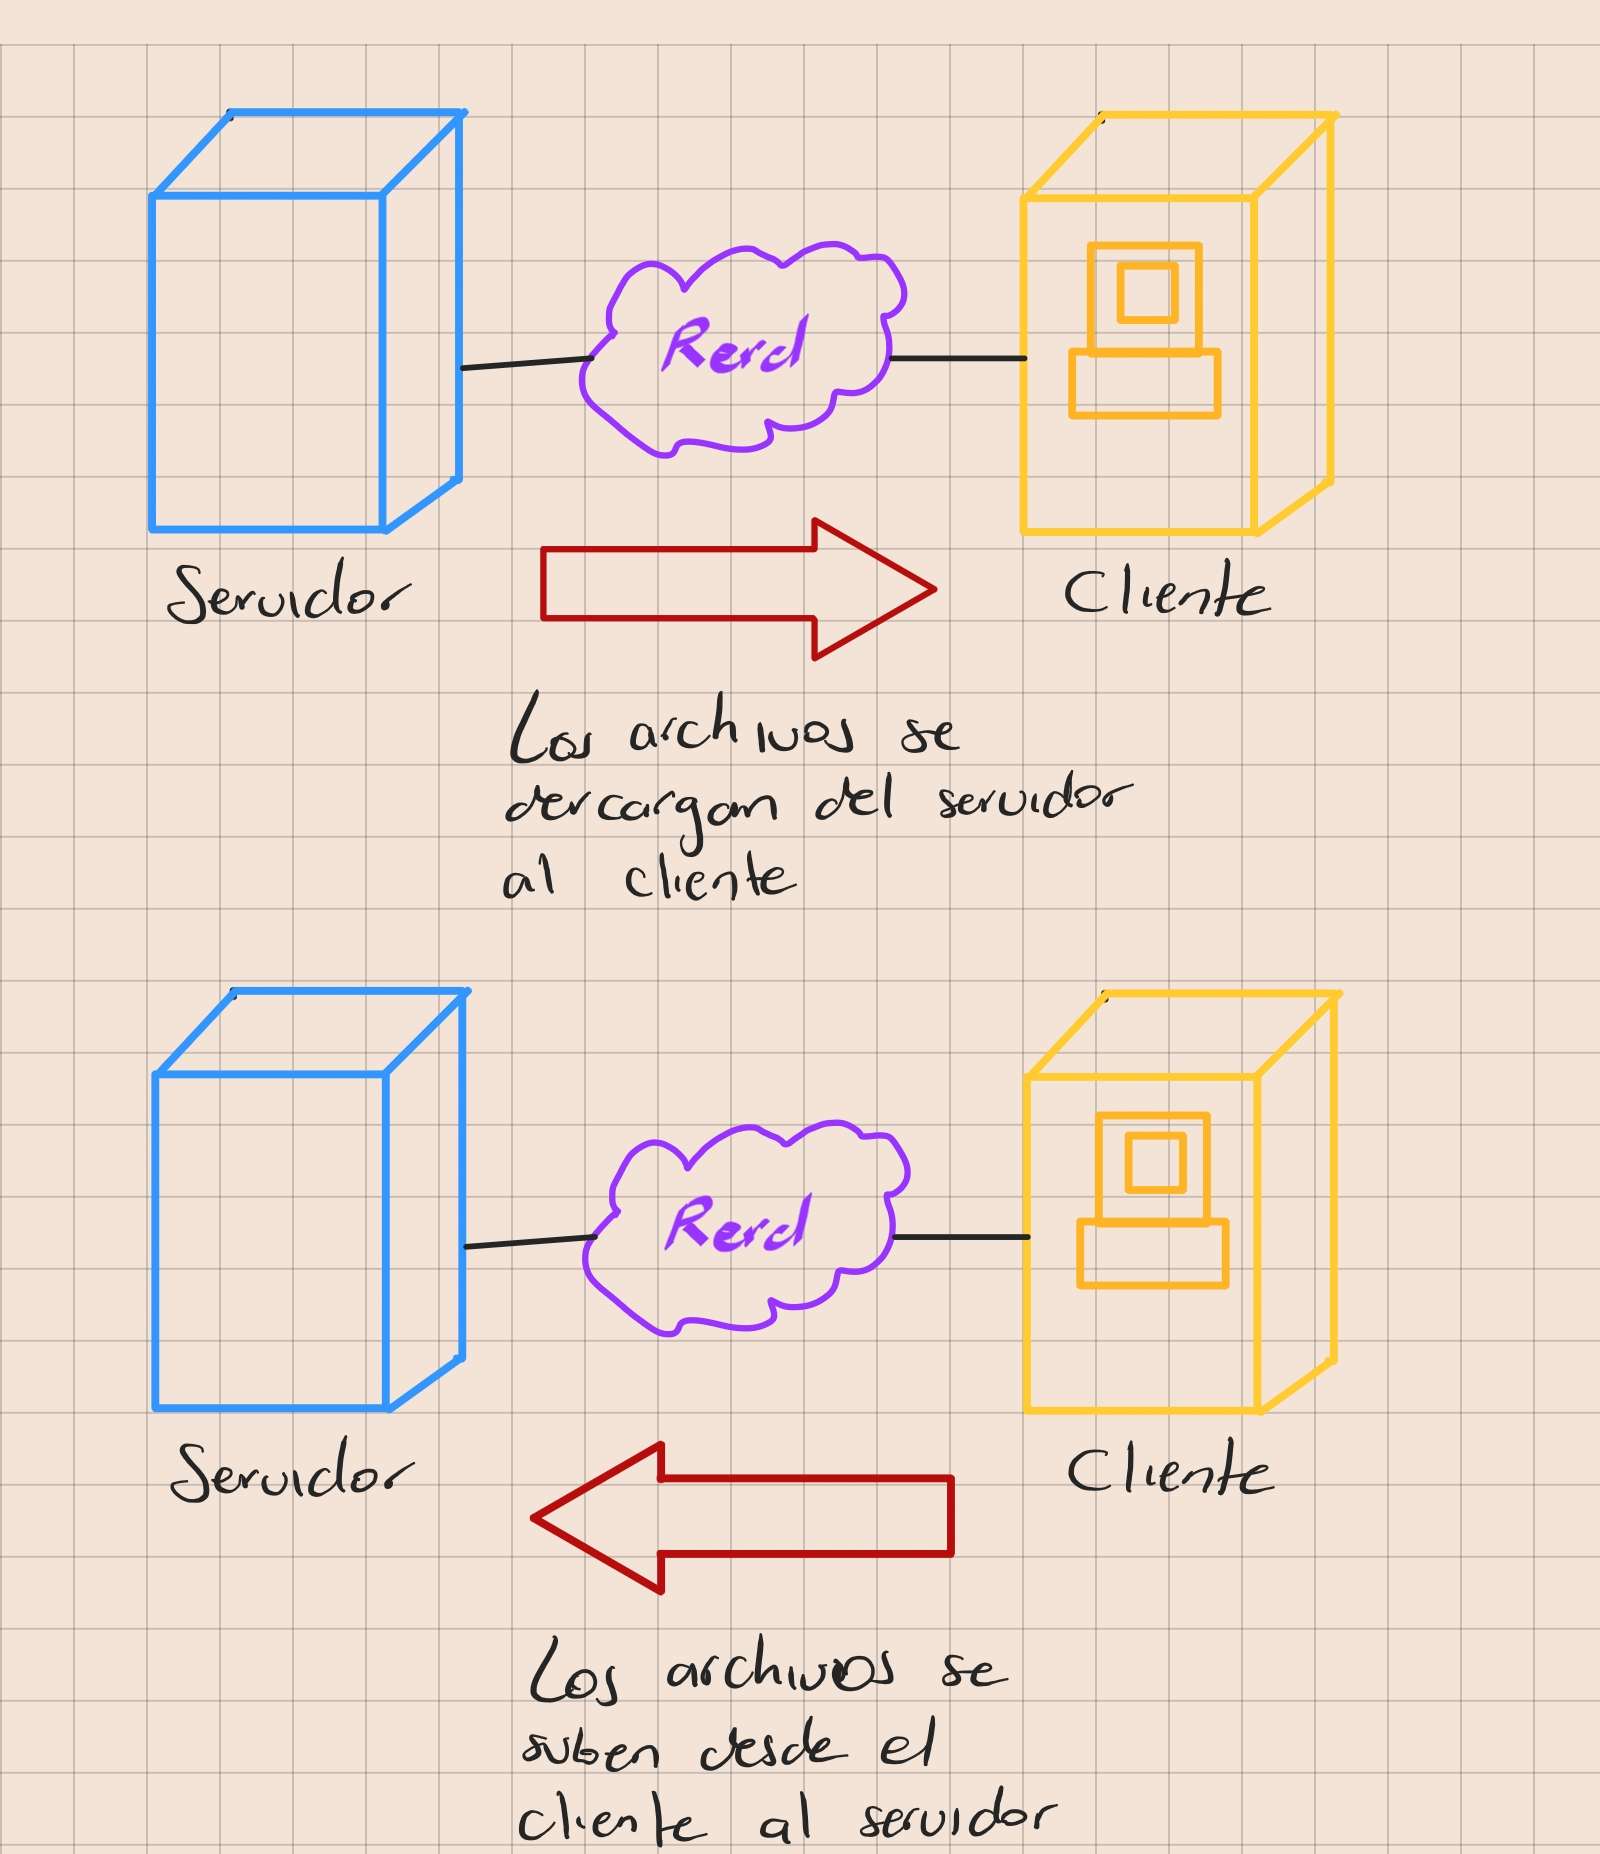 Rerd
Servidor
Cliente
Los archivos se
dercargan del servidor
al cliente
Rerd
Servidor
Cliente
Los archivos se
suben desde el
cliente al servidor